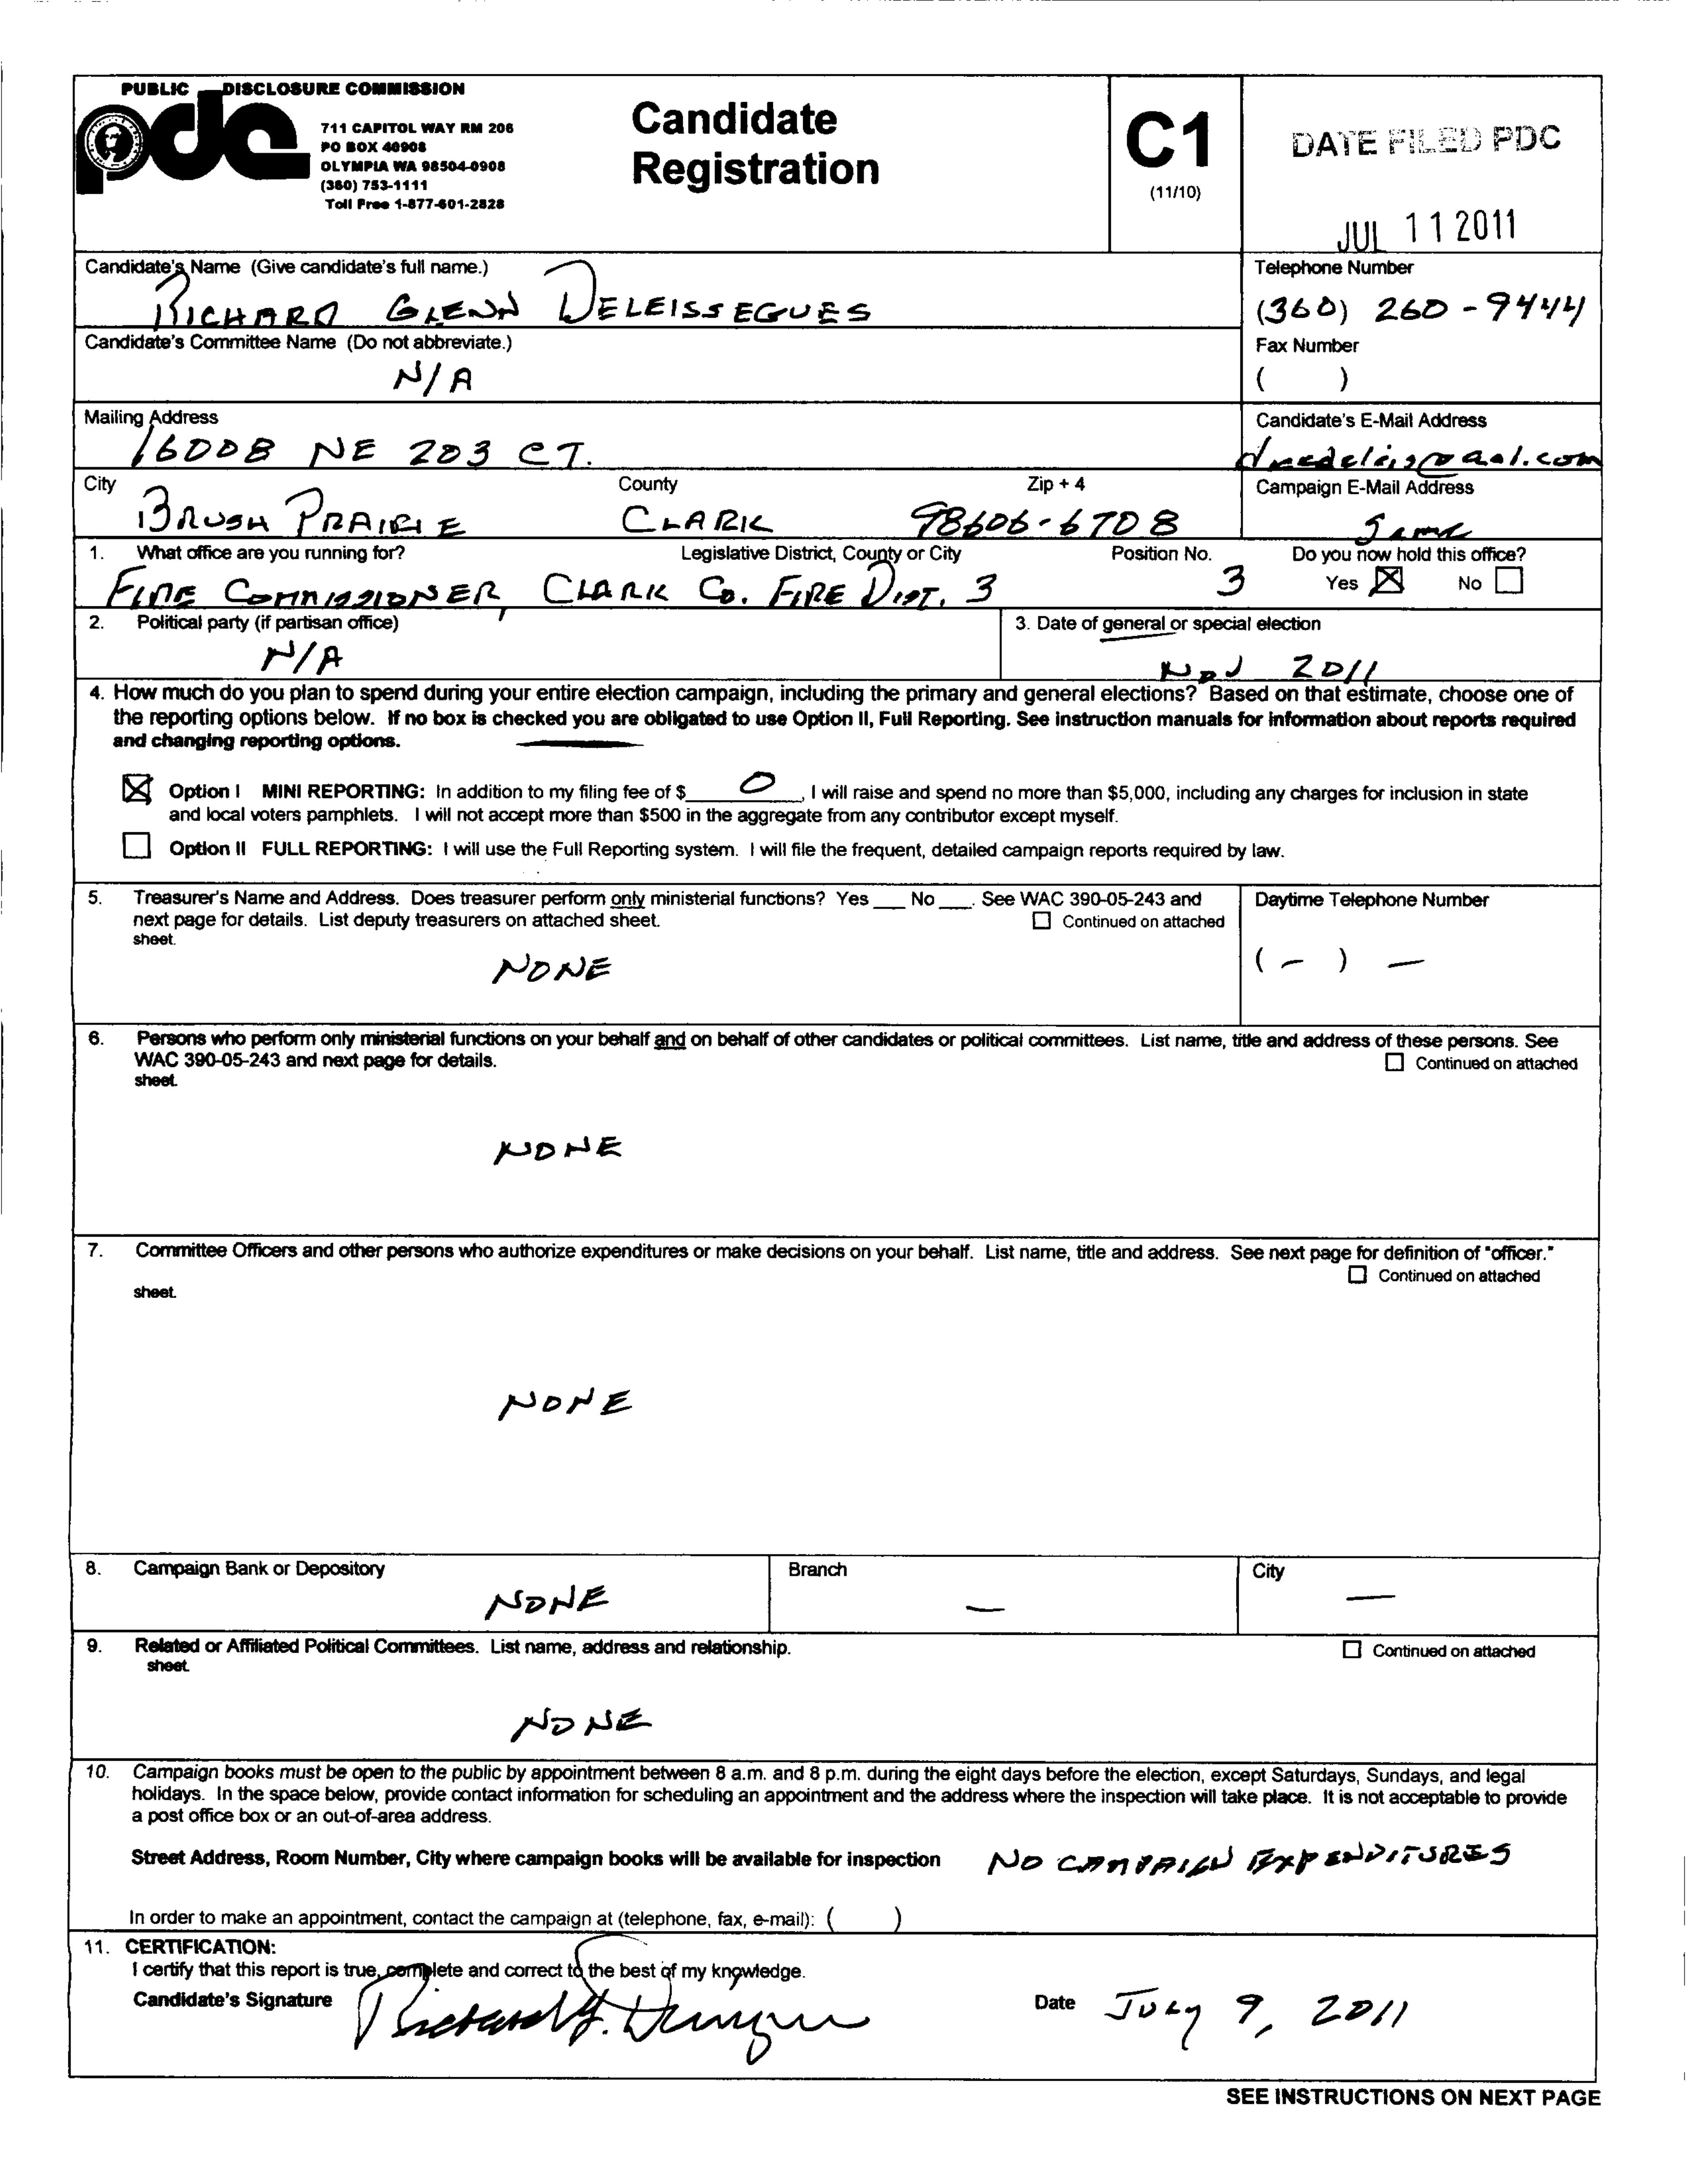 PUBLIC DISCLOSURE COMMISSION
pdc
711 CAPITOL WAY RM 206
PO BOX 40908
OLYMPIA WA 98504-0908
(360) 753-1111
Toll Free 1-877-601-2828
Candidate
Registration
C1
(11/10)
DATE FILED PDC
JUL 11 2011
Candidate's Name (Give candidate's full name.)
RICHARD GLENN DELEISSEGUES
Telephone Number
(360) 260-9444
Candidate's Committee Name (Do not abbreviate.)
N/A
Fax Number
( )
Mailing Address
16008 NE 203 CT.
Candidate's E-Mail Address
City
BRUSH PRAIRIE
County
CLARK
Zip + 4
98606-6708
Campaign E-Mail Address
Same
1. What office are you running for? Legislative District, County or City Position No. Do you now hold this office?
FIRE COMMISSIONER, CLARK CO. FIRE DIST. 3 3 Yes ☒ No ☐
2. Political party (if partisan office)
N/A
3. Date of general or special election
NOV 2011
4. How much do you plan to spend during your entire election campaign, including the primary and general elections? Based on that estimate, choose one of
the reporting options below. If no box is checked you are obligated to use Option II, Full Reporting. See instruction manuals for information about reports required
and changing reporting options.
☒ Option I MINI REPORTING: In addition to my filing fee of $ 0, I will raise and spend no more than $5,000, including any charges for inclusion in state
and local voters pamphlets. I will not accept more than $500 in the aggregate from any contributor except myself.
☐ Option II FULL REPORTING: I will use the Full Reporting system. I will file the frequent, detailed campaign reports required by law.
5. Treasurer's Name and Address. Does treasurer perform only ministerial functions? Yes ___ No ___. See WAC 390-05-243 and
next page for details. List deputy treasurers on attached sheet. ☐ Continued on attached
sheet.
NONE
Daytime Telephone Number
( - ) -
6. Persons who perform only ministerial functions on your behalf and on behalf of other candidates or political committees. List name, title and address of these persons. See
WAC 390-05-243 and next page for details. ☐ Continued on attached
sheet.
NONE
7. Committee Officers and other persons who authorize expenditures or make decisions on your behalf. List name, title and address. See next page for definition of "officer."
☐ Continued on attached
sheet.
NONE
8. Campaign Bank or Depository
NONE
Branch
—
City
—
9. Related or Affiliated Political Committees. List name, address and relationship. ☐ Continued on attached
sheet.
NONE
10. Campaign books must be open to the public by appointment between 8 a.m. and 8 p.m. during the eight days before the election, except Saturdays, Sundays, and legal
holidays. In the space below, provide contact information for scheduling an appointment and the address where the inspection will take place. It is not acceptable to provide
a post office box or an out-of-area address.
Street Address, Room Number, City where campaign books will be available for inspection NO CAMPAIGN EXPENDITURES
In order to make an appointment, contact the campaign at (telephone, fax, e-mail): ( )
11. CERTIFICATION:
I certify that this report is true, complete and correct to the best of my knowledge.
Candidate's Signature
Date JULY 9, 2011
SEE INSTRUCTIONS ON NEXT PAGE